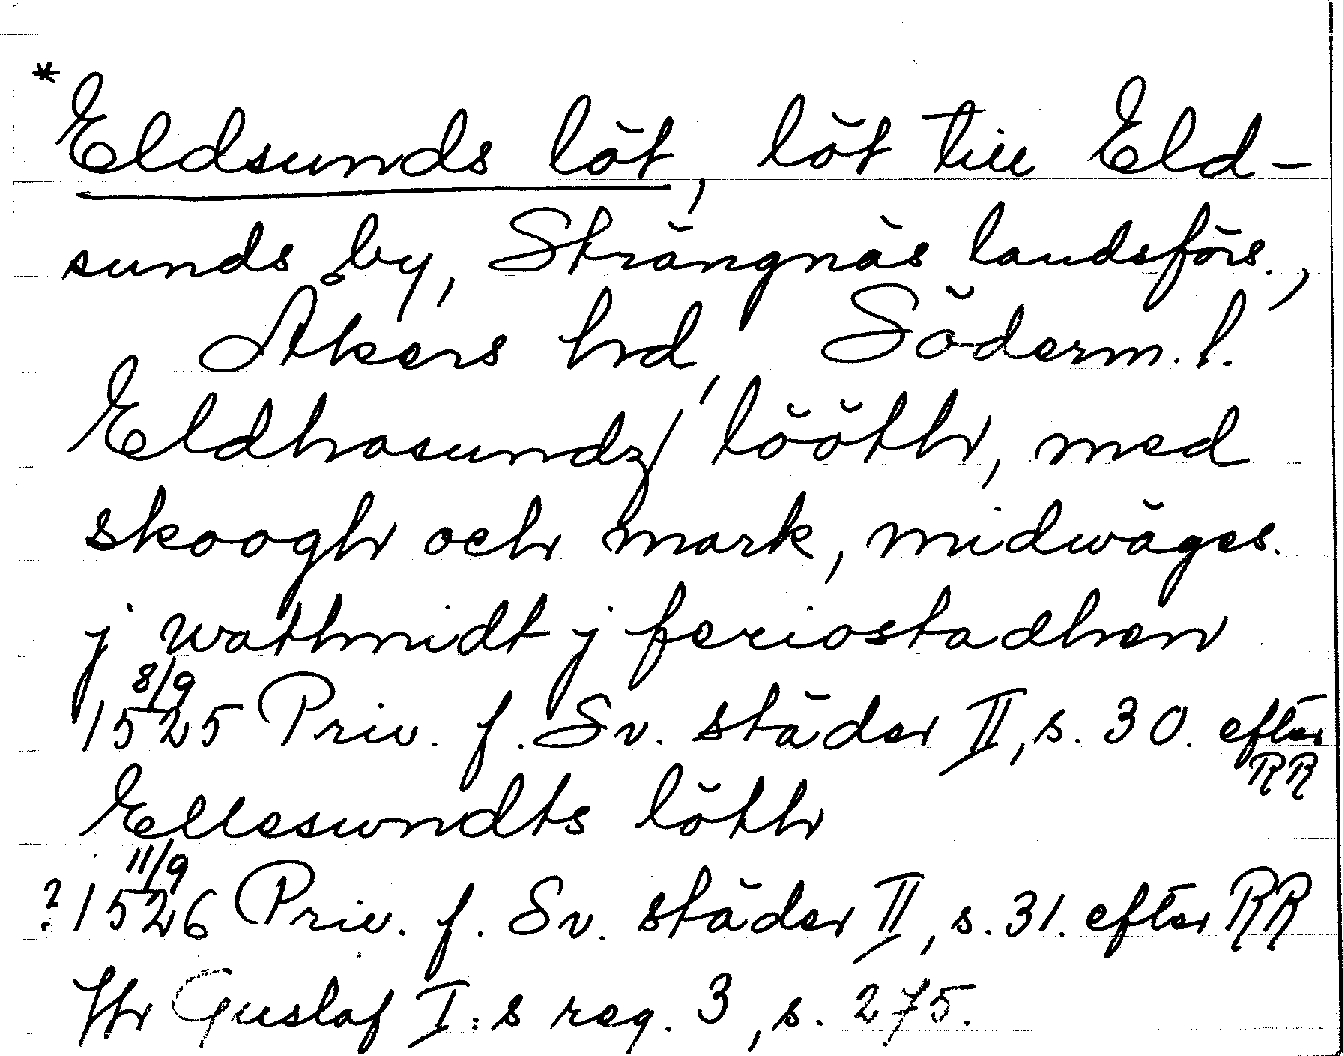 * Eldsunds löt, löt till Eld-
sunds by, Strängnäs landsförs.,
Åkers hd, Söderm. l.
Eldhasundz lööth, med
skoogh och mark, midwäges
j wathnidt j feriostadhen
8/9 1525 Priv. f. Sv. städer II, s. 30. efter RR
Ellesundts löth
? 11/9 1526 Priv. f. Sv. städer II, s. 31. efter RR
Jfr Gustaf I:s reg. 3, s. 275.